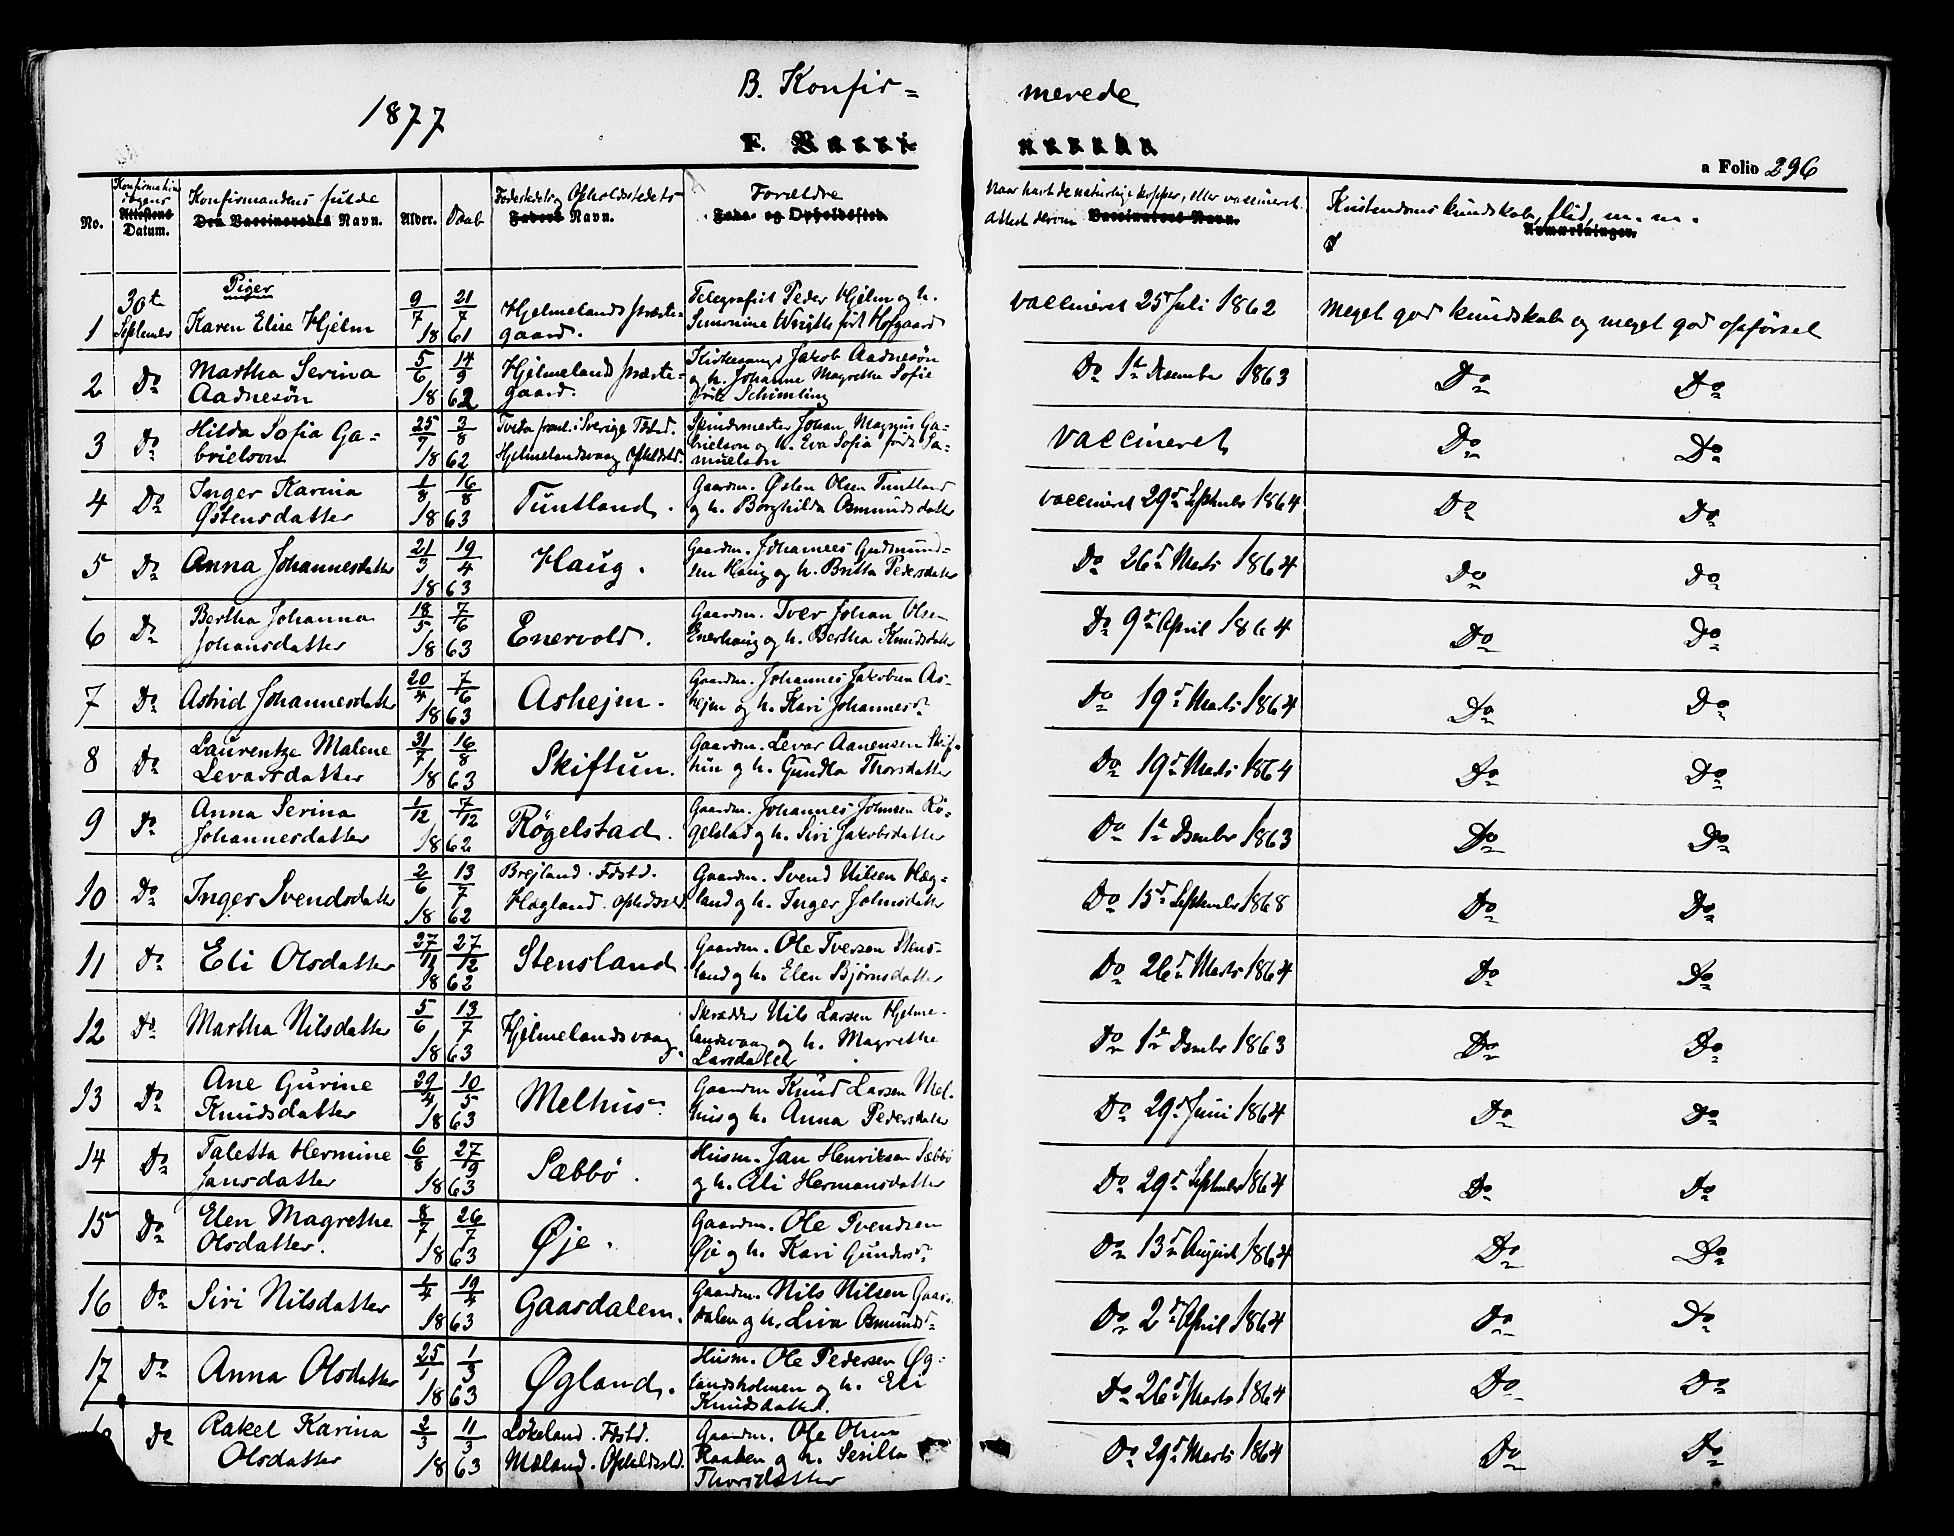 1877
B. Konfir=
merede
a Folio 296
No.
Konfirmations
dagens
Datum.
Konfirmandens fulde
Navn.
Alder.
Daab
Navn.
Forældre
Naar havt de naturlige kopper, eller vaccineret.
Attest derom
Kristendoms kundskab, flid, m. m.
Piger
1 30t September Karen Elise Hjelm 9/7 18 21/7 61 Hjelmelands præste-
gaard. Telegrafist Peder Hjelm og h.
født Hofgaard vaccineret 25 Juli 1862 Meget god kundskab og meget god opførsel
2 Do Martha Serina
Aadnesøn 5/6 18 14/9 62 Hjelmeland præste-
gaard. Kirkesanger Jakob Aadnesøn
og h. Johanne Magrethe Sofie
født Schimling Do 1te Desember 1863 Do Do
3 Do Hilda Sofia Ga=
brielson 25/7 18 3/8 62 Sverige Fdstd.
Hjelmelandsvaag Opholdstd. Johan Magnus Ga-
brielson og h. Eva Sofia født Sa-
muelsøn vaccineret Do Do
4 Do Inger Karina
Østensdatter 1/8 18 16/8 63 Tuntland. Gaardm. Østen Olsen Tuntland
og h. Borghilda Osmundsdatter vaccineret 29d September 1864 Do Do
5 Do Anna Johannesdatter 21/3 18 19/4 63 Haug. Gaardm. Johannes Gudmund=
sen Haug og h. Britta Pedersdatter Do 26d Marts 1864 Do Do
6 Do Bertha Johanna
Johansdatter 18/5 18 7/6 63 Enervold. Gaardm. Iver Johan Olsen
Enerhaug og h. Bertha Knudsdatter Do 9d April 1864 Do Do
7 Do Astrid Johannesdatter 20/4 18 7/6 63 Ashejm. Gaardm. Johannes Jakobsen As-
hejm og h. Kari Johannesd. Do 19d Marts 1864 Do Do
8 Do Laurentze Malene
Levarsdatter 31/7 18 16/8 63 Skiftun. Gaardm. Levar Aanensen Skif-
tun og h. Gundla Thorsdatter Do 19d Marts 1864 Do Do
9 Do Anna Serina
Johannesdatter 1/12 18 7/12 62 Røgelstad. Gaardm. Johannes Johnsen Rø-
gelstad og h. Siri Jakobsdatter Do 1te Desember 1863 Do Do
10 Do Inger Svendsdatter 2/6 18 13/7 62 Brejland. Fdstd.
Hægland. Opholdsstd. Gaardm. Svend Nilsen Hæg-
land og h. Inger Johnsdatter Do 15d September 1868 Do Do
11 Do Eli Olsdatter 27/11 18 27/12 62 Stensland. Gaardm. Ole Iversen Stens-
land og h. Elen Bjørnsdatter Do 26d Marts 1864 Do Do
12 Do Martha Nilsdatter 5/6 18 13/7 63 Hjelmelandsvaag. Skrædder Nils Larsen Hjelme-
landsvaag og h. Magrethe
Larsdatter Do 1te Desember 1863 Do Do
13 Do Ane Gurine
Knudsdatter 29/4 18 10/5 63 Melhus. Gaardm Knud Larsen Mel-
hus og h. Anna Pedersdatter Do 29d Juni 1864 Do Do
14 Do Taletta Hermine
Jansdatter 6/8 18 27/9 63 Sæbbø. Husm. Jan Henriksen Sæbbø
og h. Eli Hermansdatter Do 29d September 1864 Do Do
15 Do Elen Magrethe
Olsdatter. 8/7 18 26/7 63 Øje. Gaardm. Ole Svendsen
Øje og h. Kari Gundersd. Do 13d August 1864 Do Do
16 Do Siri Nilsdatter 1/4 18 19/4 63 Gaardalem. Gaardm. Nils Nilsen Gaar-
dalen og h. Liva Osmundsd. Do 2d April 1864 Do Do
17 Do Anna Olsdatter 25/1 18 1/3 63 Øgland. Husm. Ole Pedersen Øg-
landsholmen og h. Eli
Knudsdatter. Do 26d Marts 1864 Do Do
Do Rakel Karina
Olsdatter 2/3 18 11/3 63 Løkeland. Fdstd.
Mæland. Opholdsstd. Gaardm. Ole Olsen
Raaken og h. Serilla
Thorsdatter Do 29d Marts 1864 Do Do